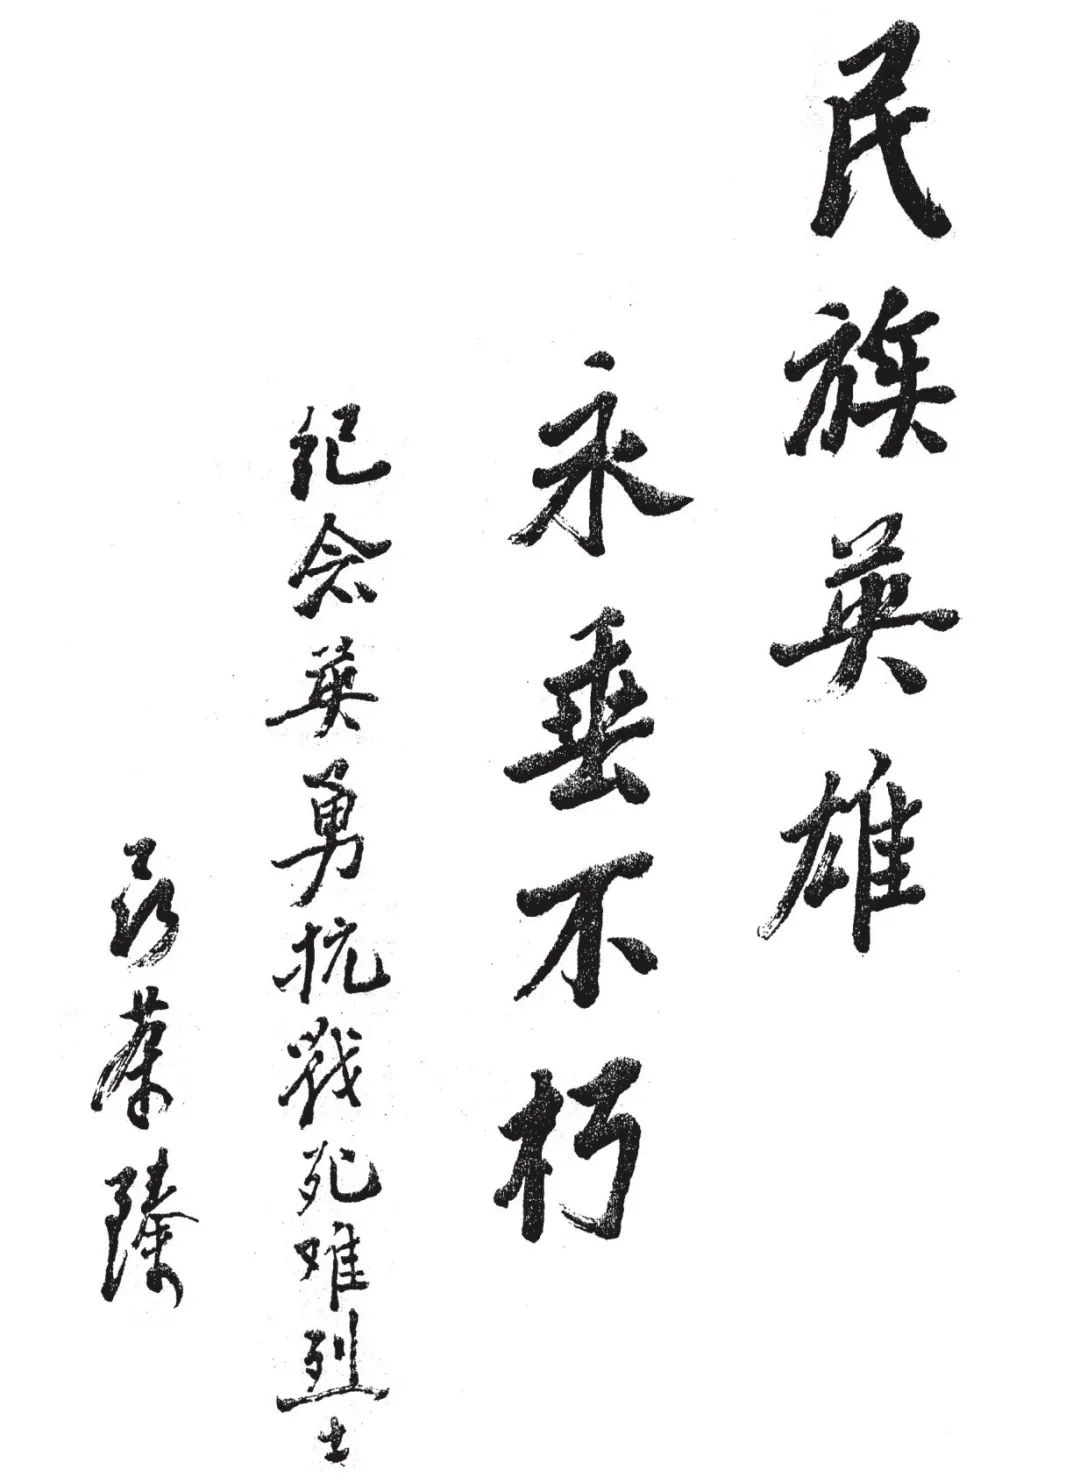 民族英雄
永垂不朽
纪念英勇抗战死难烈士
聂荣臻